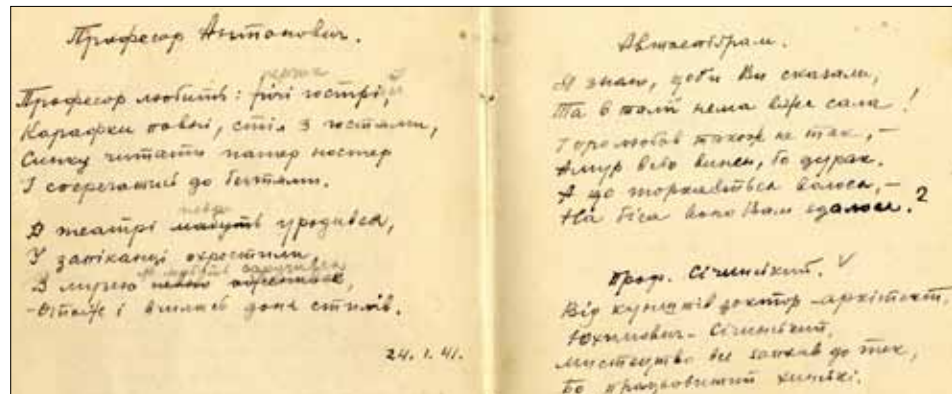 Професор Антонович.
Професор любить: речі гострі,
Карафки повні, стіл з гостями,
Синку читати патер ностер
І сперечатися до безтями.
певно
В театрі мабуть уродився,
У запіканці охрестили
В музею
Отож і вийшов дона стилів.
24. 1. 41.
Автоепіграм.
Я знаю, щоби Ви сказали,
Та в талії нема вже сала!
І про любов також не так, –
Амур всьо винен, бо дурак.
А що торкається волоса, –
На біса воно Вам здалося?
Проф. Січинський. V
Від кунштів доктор-архітект,
Юхимович-Січинський,
Мистецтво все до тек,
Бо працьовитий